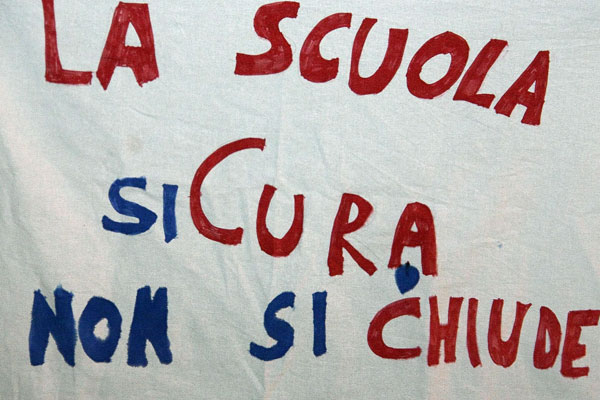 LA SCUOLA
SICURA
NON SI CHIUDE